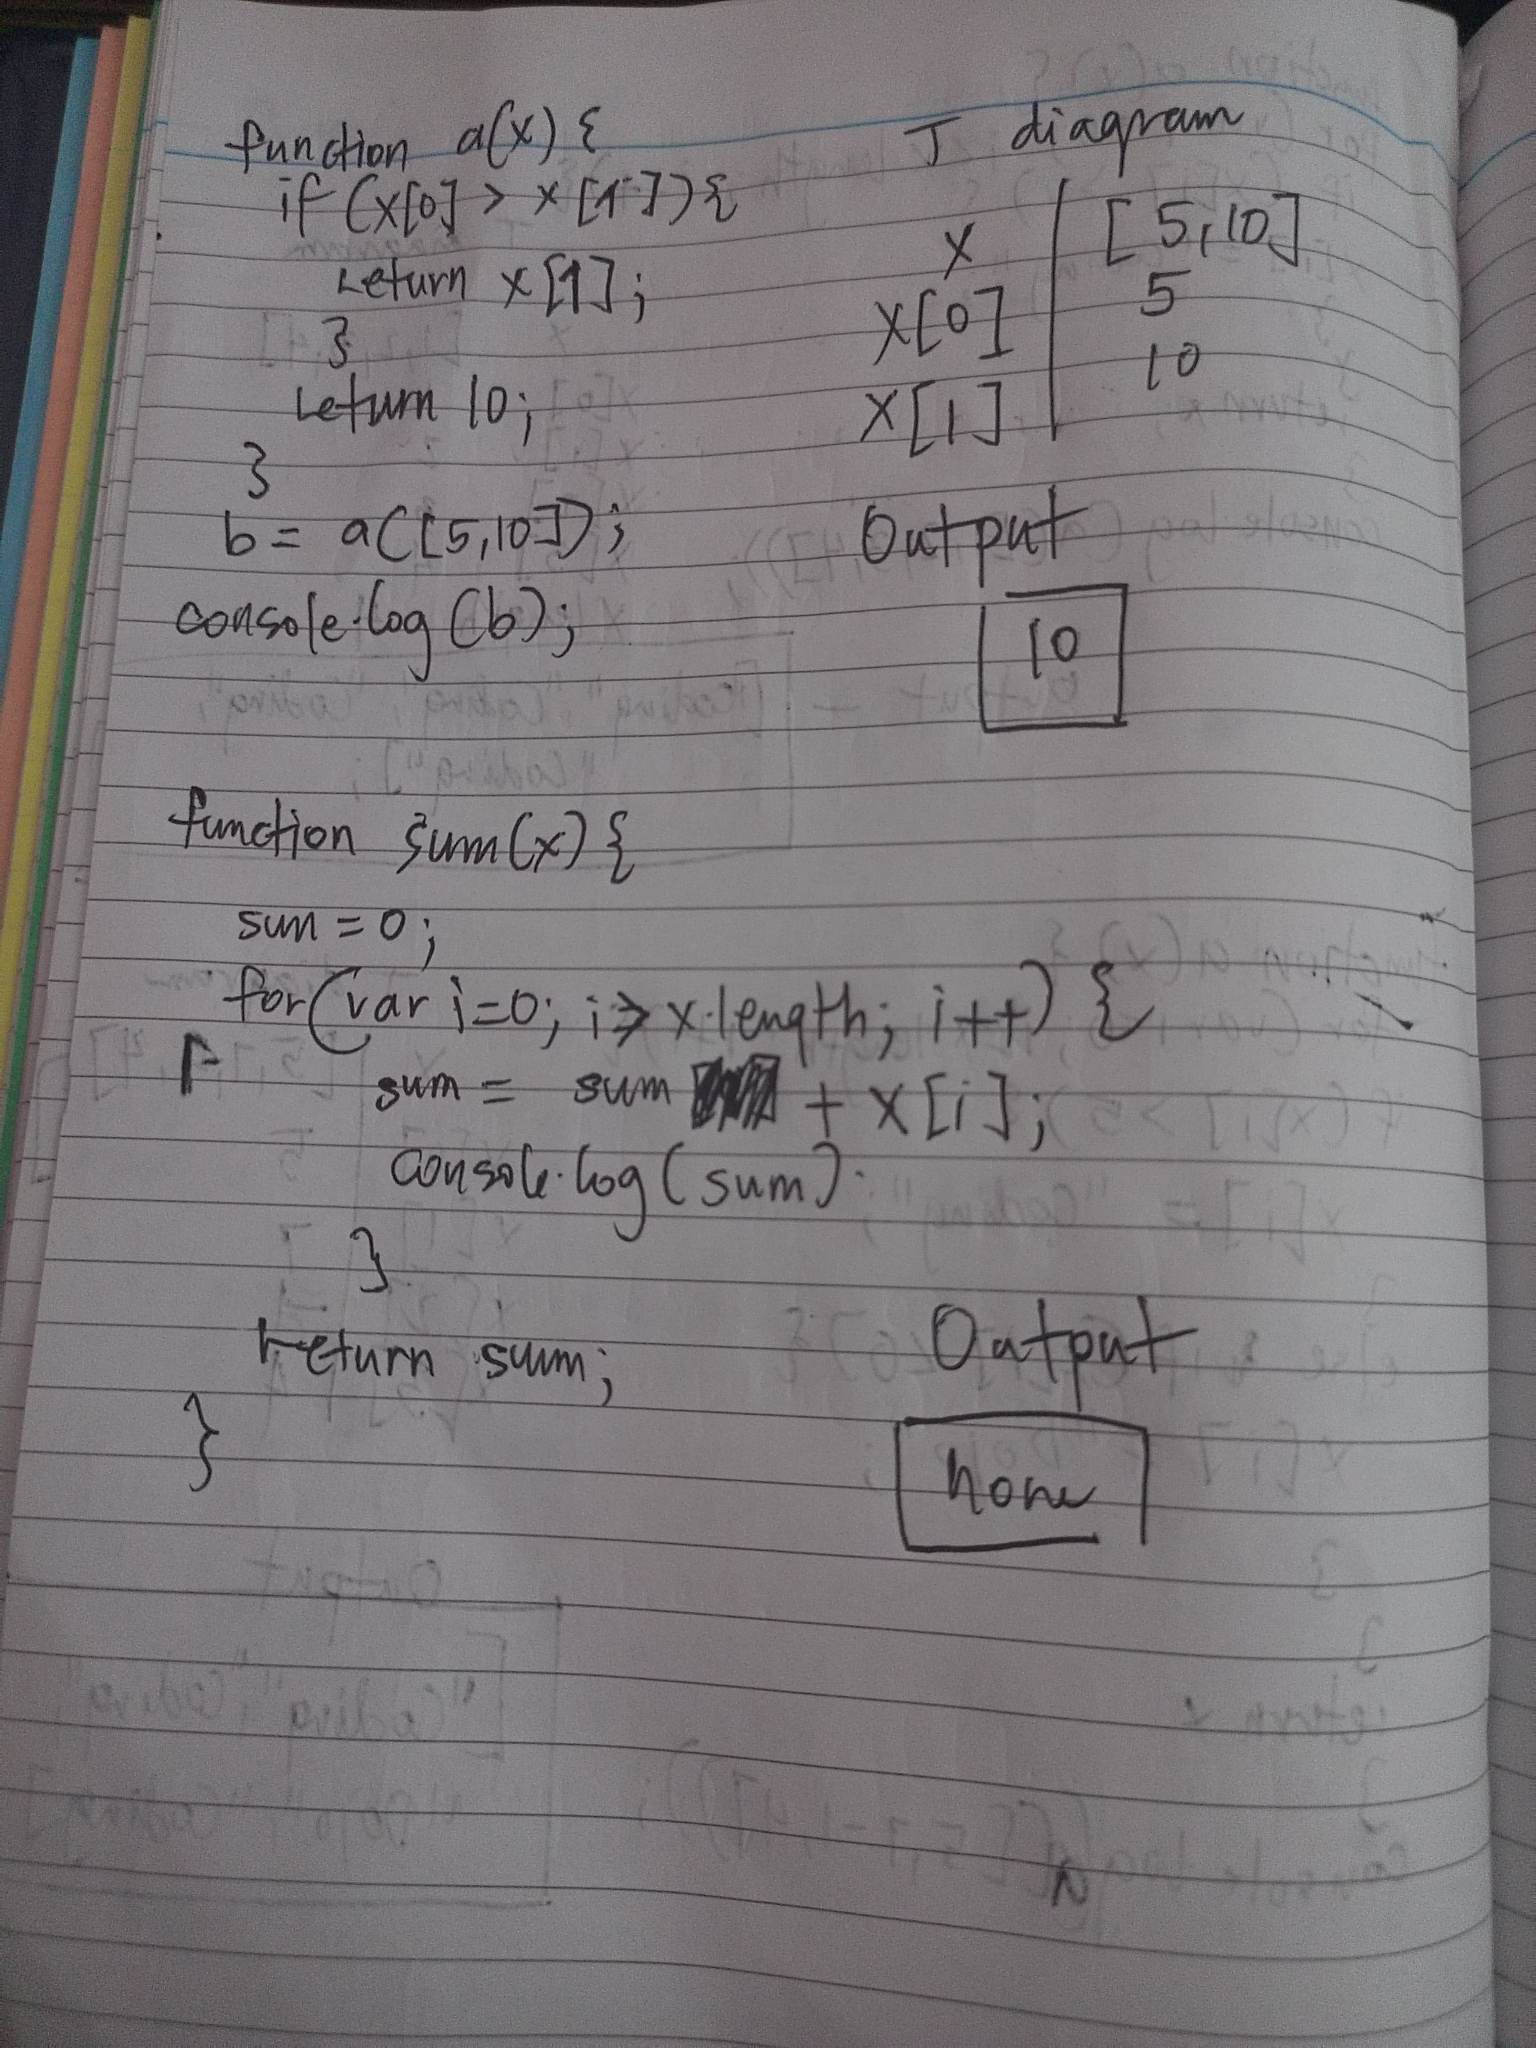 function a(x) {
if (x[0] > x [1]) {
return x[1];
}
return 10;
}
b = a([5,10]);
console.log (b);
T diagram
x [5,10]
x[0] 5
x[1] 10
Output
10
function sum(x) {
sum = 0;
for(var i=0; i> x.length; i++) {
sum = sum + x[i];
console.log(sum).
}
return sum;
}
Output
none